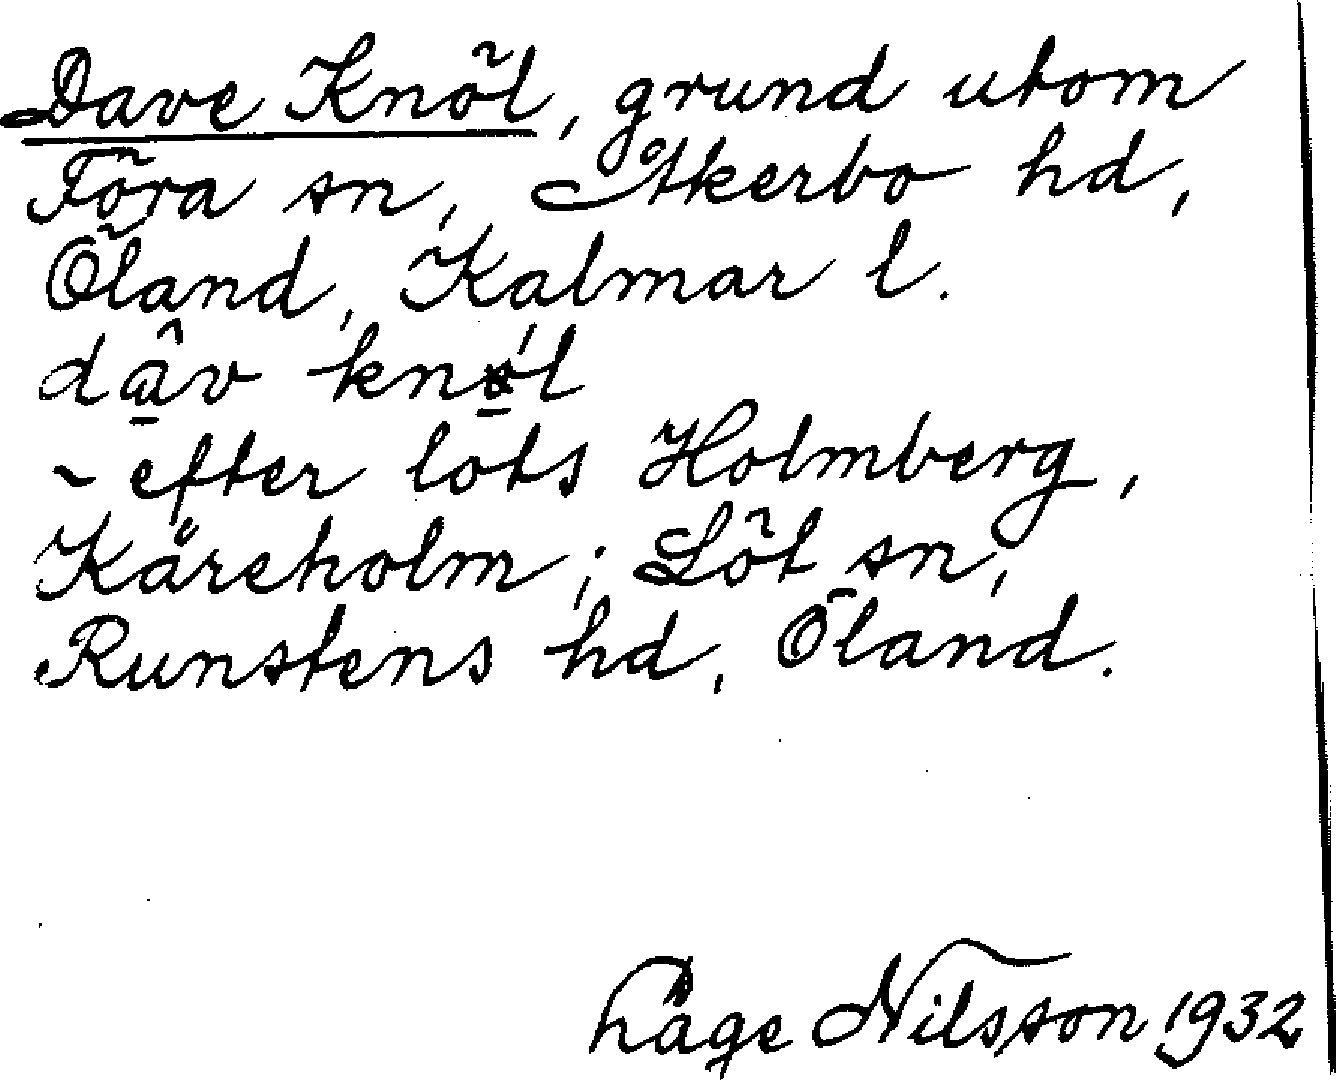 Dave Knöl, grund utom
Föra sn, Åkerbo hd,
Öland, Kalmar l.
dâ̱v knǿ̱l
~ efter lots Holmberg,
Käreholm; Löt sn,
Runstens hd, Öland.
Låge Nilsson 1932